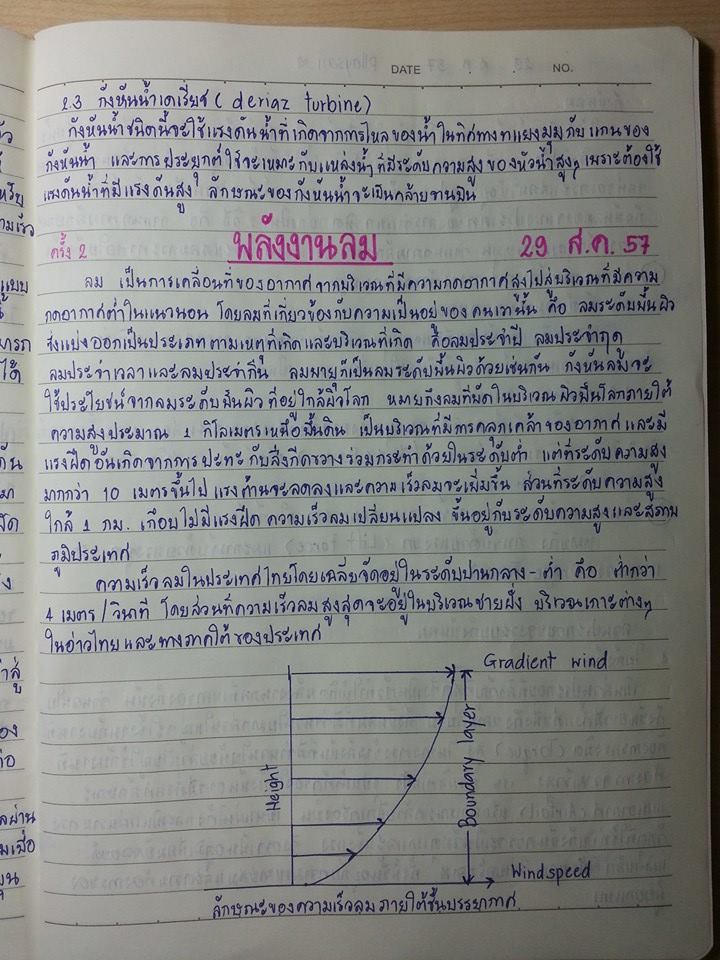 DATE . . . NO.
2.3 กังหันน้ำเดเรียซ (deriaz turbine)
กังหันน้ำชนิดนี้จะใช้แรงดันน้ำที่เกิดจากการไหลของน้ำในทิศทางทแยงมุมกับแกนของ
กังหันน้ำ และการประยุกต์ใช้จะเหมาะกับแหล่งน้ำที่มีระดับความสูงของหัวน้ำสูงๆ เพราะต้องใช้
แรงดันน้ำที่มีแรงดันสูง ลักษณะของกังหันน้ำจะเป็นคล้าย
ครั้ง 2 พลังงานลม 29 ส.ค. 57
ลม เป็นการเคลื่อนที่ของอากาศจากบริเวณที่มีความกดอากาศสูงไปสู่บริเวณที่มีความ
กดอากาศต่ำในแนวนอน โดยลมที่เกี่ยวข้องกับความเป็นอยู่ของคนเรานั้น คือ ลมระดับพื้นผิว
ซึ่งแบ่งออกเป็นประเภทตามเหตุที่เกิดและบริเวณที่เกิด คือลมประจำปี ลมประจำฤดู
ลมประจำเวลาและลมประจำถิ่น ลมพายุก็เป็นลมระดับพื้นผิวด้วยเช่นกัน กังหันลมจะ
ใช้ประโยชน์จากลมระดับพื้นผิวที่อยู่ใกล้ผิวโลก หมายถึงลมที่พัดในบริเวณผิวพื้นโลกภายใต้
ความสูงประมาณ 1 กิโลเมตรเหนือพื้นดิน เป็นบริเวณที่มีการคลุกเคล้าของอากาศและมี
แรงฝืดอันเกิดจากการปะทะกับสิ่งกีดขวางร่วมกระทำด้วยในระดับต่ำ แต่ที่ระดับความสูง
มากกว่า 10 เมตรขึ้นไป แรงต้านจะลดลงและความเร็วลมจะเพิ่มขึ้น ส่วนที่ระดับความสูง
ใกล้ 1 กม. เกือบไม่มีแรงฝืด ความเร็วลมเปลี่ยนแปลง ขึ้นอยู่กับระดับความสูงและสภาพ
ภูมิประเทศ
ความเร็วลมในประเทศไทยโดยเฉลี่ยจัดอยู่ในระดับปานกลาง - ต่ำ คือ ต่ำกว่า
4 เมตร/วินาที โดยส่วนที่ความเร็วลมสูงสุดจะอยู่ในบริเวณชายฝั่ง บริเวณเกาะต่างๆ
ในอ่าวไทยและทางภาคใต้ของประเทศ
Gradient wind
Height
Boundary layer
Windspeed
ลักษณะของความเร็วลมภายใต้ชั้นบรรยากาศ